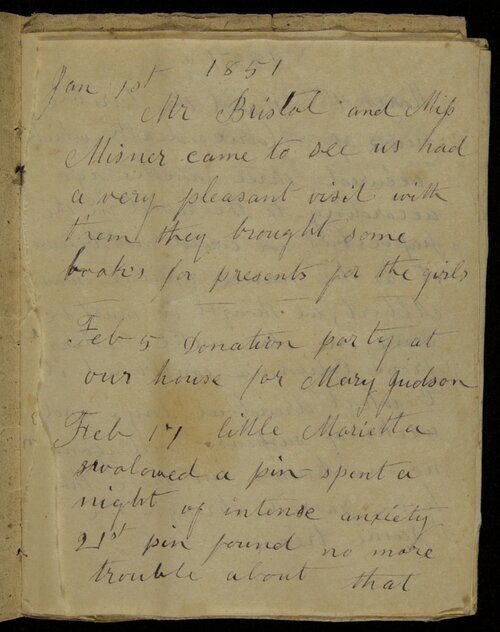 Jan 1st 1851
Mr Bristol and Miss
Misner came to see us had
a very pleasant visit with
them they brought some
books for presents for the girls
Feb 5 Donation party at
our house for Mary Judson
Feb 17 little Marietta
swolowed a pin spent a
night of intense anxiety
21st pin found no more
trouble about that